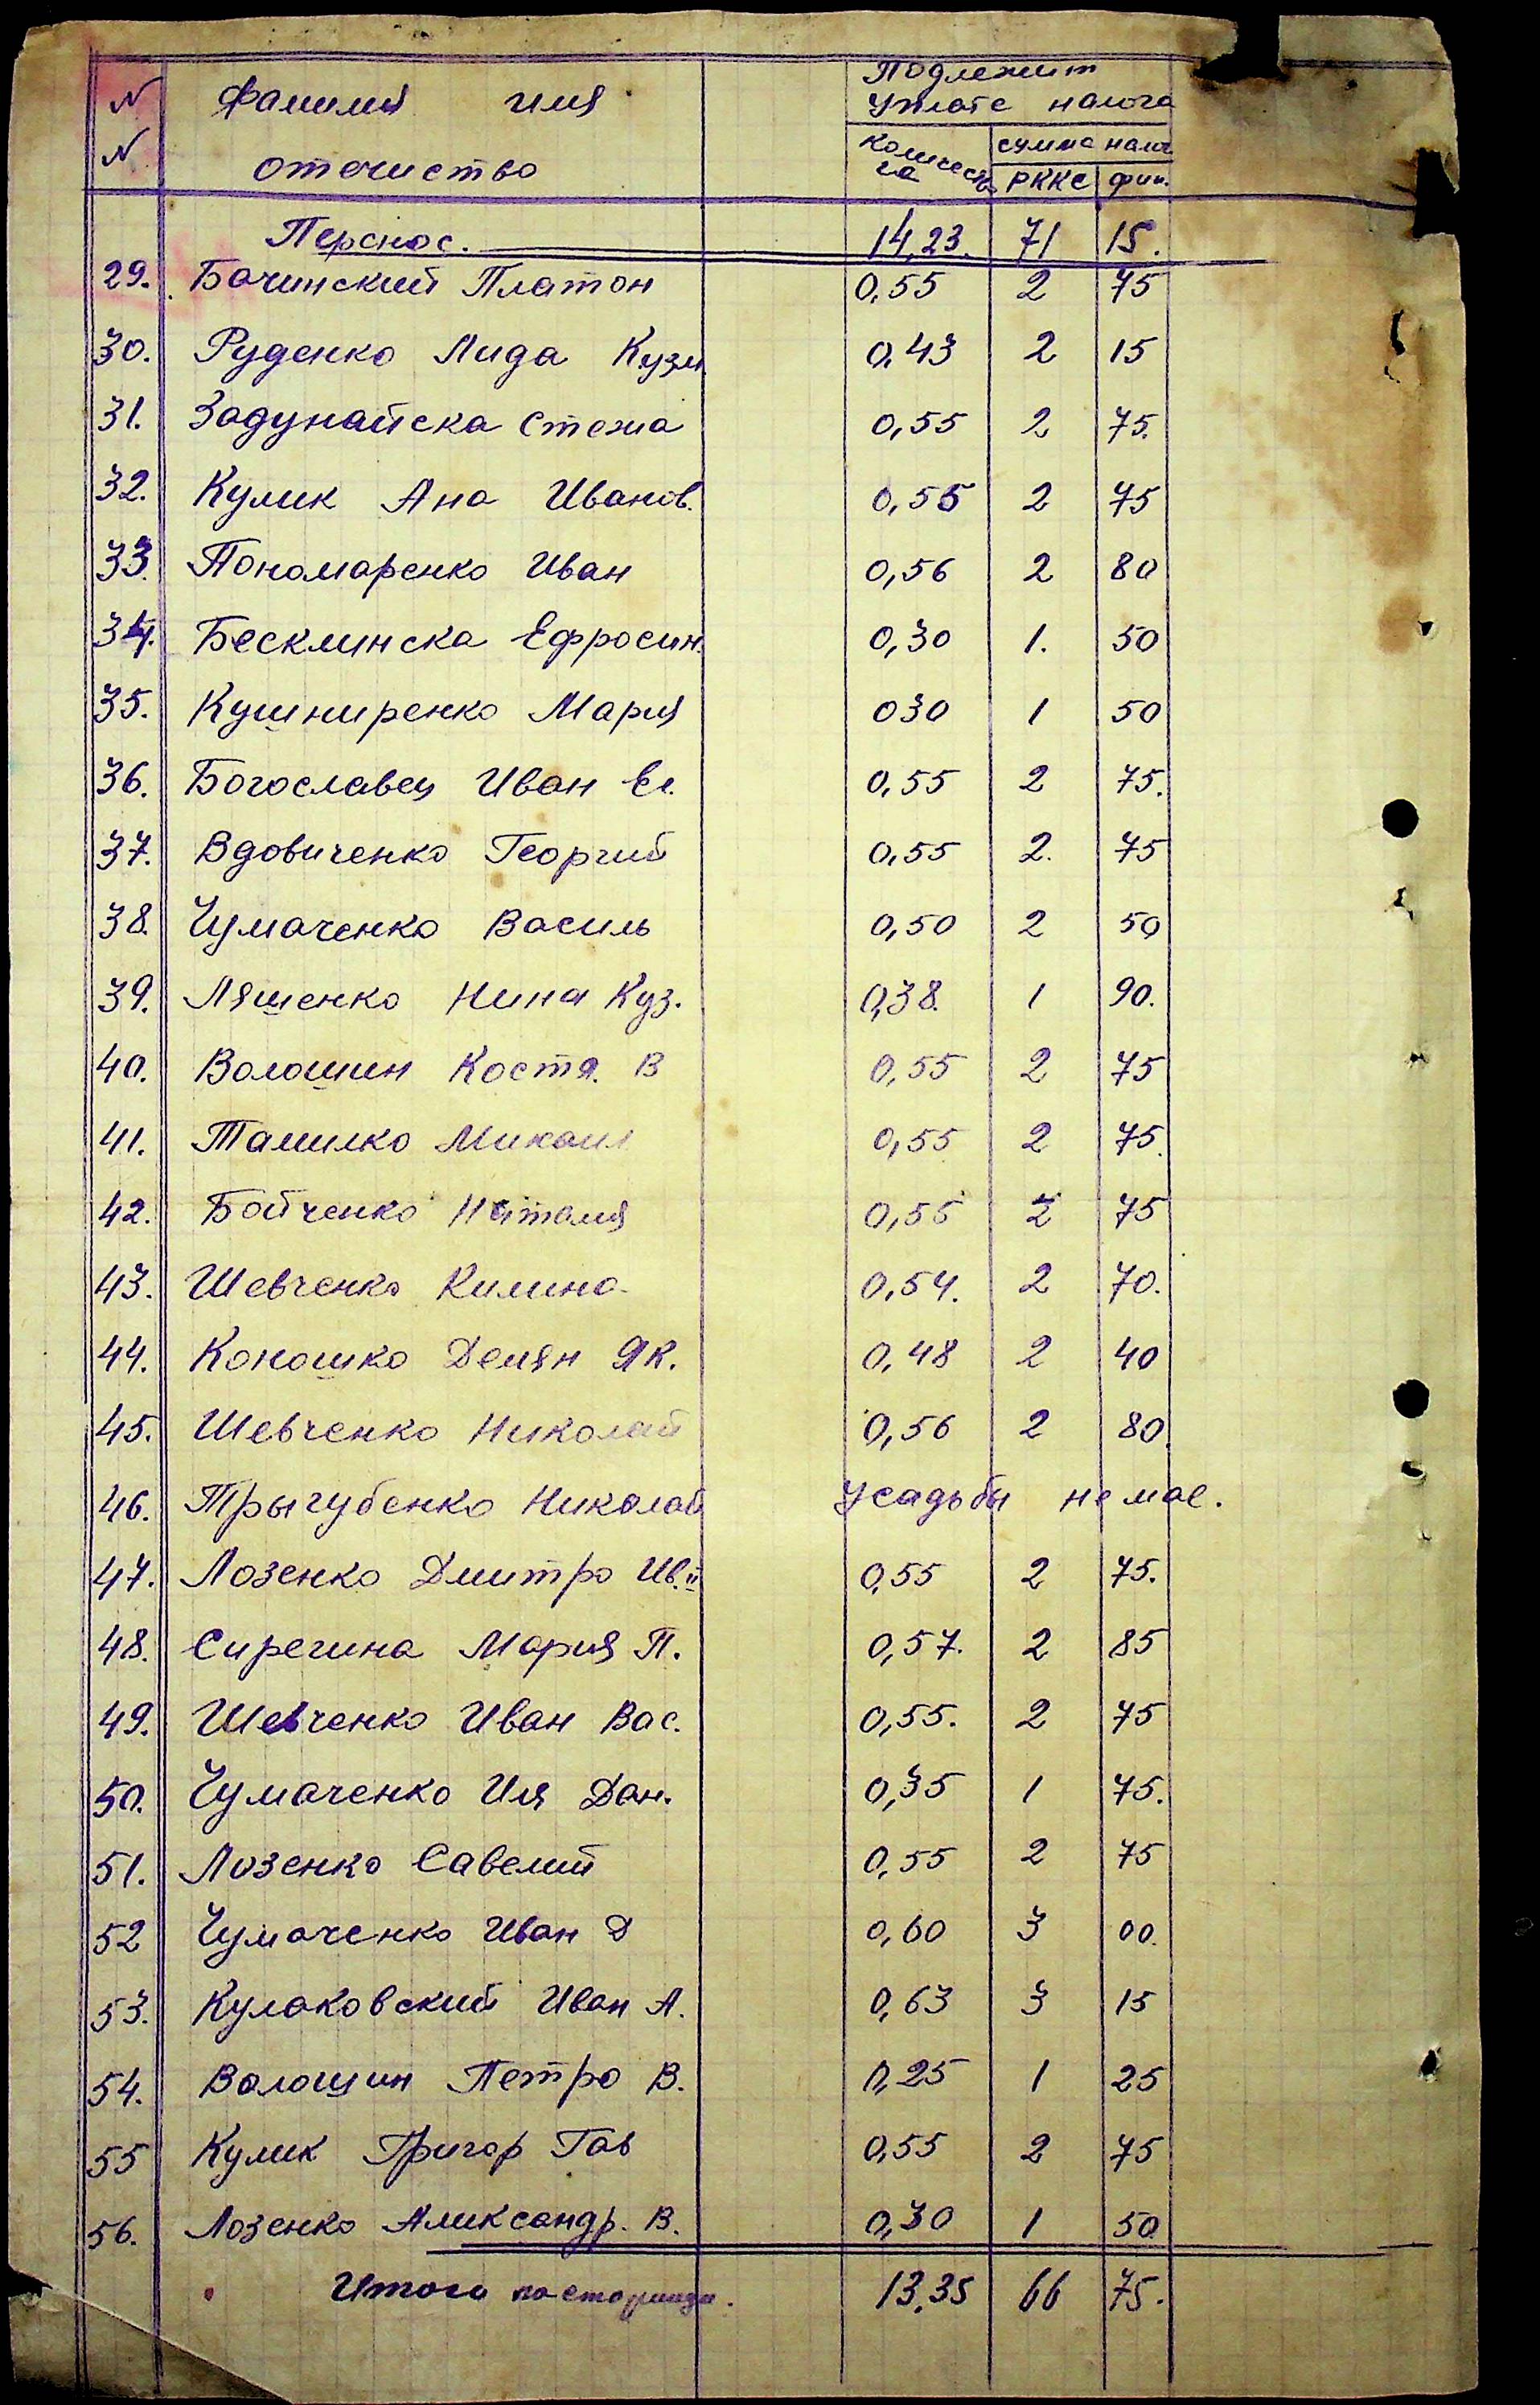 N N Фамилия имя отечиство Подлежит уплате налога
Количество га сумма налог.
РККС фин.
Перенос. 14,23. 71 15.
29. Бачинский Платон 0,55 2 75
30. Руденко Лида Кузм 0,43 2 15
31. Задунайска Стежа 0,55 2 75.
32. Кулик Ана Иванов. 0,55 2 75
33. Пономаренко Иван 0,56 2 80
34. Бесклинска Ефросин. 0,30 1. 50
35. Кушниренко Мария 030 1 50
36. Богославец Иван Ел. 0,55 2 75.
37. Вдовиченко Георгий 0,55 2. 75
38. Чумаченко Василь 0,50 2 50
39. Ляшенко Нина Куз. 0,38. 1 90.
40. Волошин Костя. В 0,55 2 75
41. Тамилко Микаил 0,55 2 75.
42. Бойченко Наталия 0,55 2 75
43. Шевченко Килина 0,54. 2 70.
44. Коношко Демян Як. 0,48 2 40
45. Шевченко Николай 0,56 2 80.
46. Трыгубенко Николай Усадьбы не мае.
47. Лозенко Дмитро Ив. II 0,55 2 75.
48. Сирегина Мария П. 0,57. 2 85
49. Шевченко Иван Вас. 0,55. 2 75
50. Чумаченко Иля Дан. 0,35 1 75.
51. Лозенко Савелий 0,55 2 75
52 Чумаченко Иван Д 0,60 3 00.
53. Кулаковский Иван А. 0,63 3 15
54. Волошин Петро В. 0,25 1 25
55 Кулик Григор Гав 0,55 2 75
56. Лозенко Александр. В. 0,30 1 50
Итого по сторинци. 13,35 66 75.